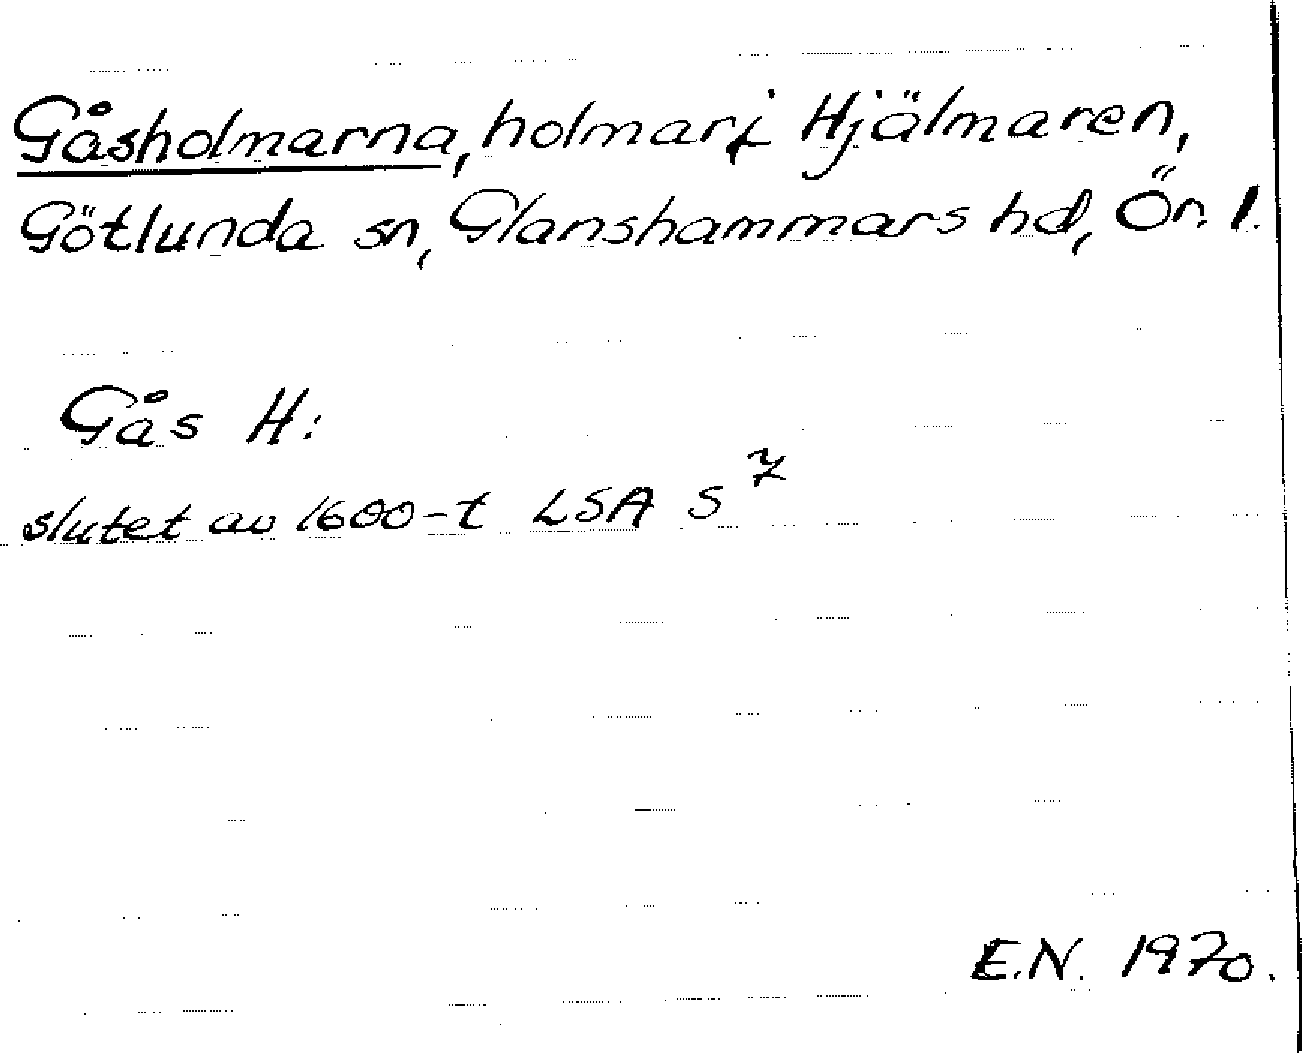 Gåsholmarna, holmar i Hjälmaren,
Götlunda sn, Glanshammars hd, Ön. l.
Gås H:
slutet av 1600-t LSA S 7
E.N. 1970.